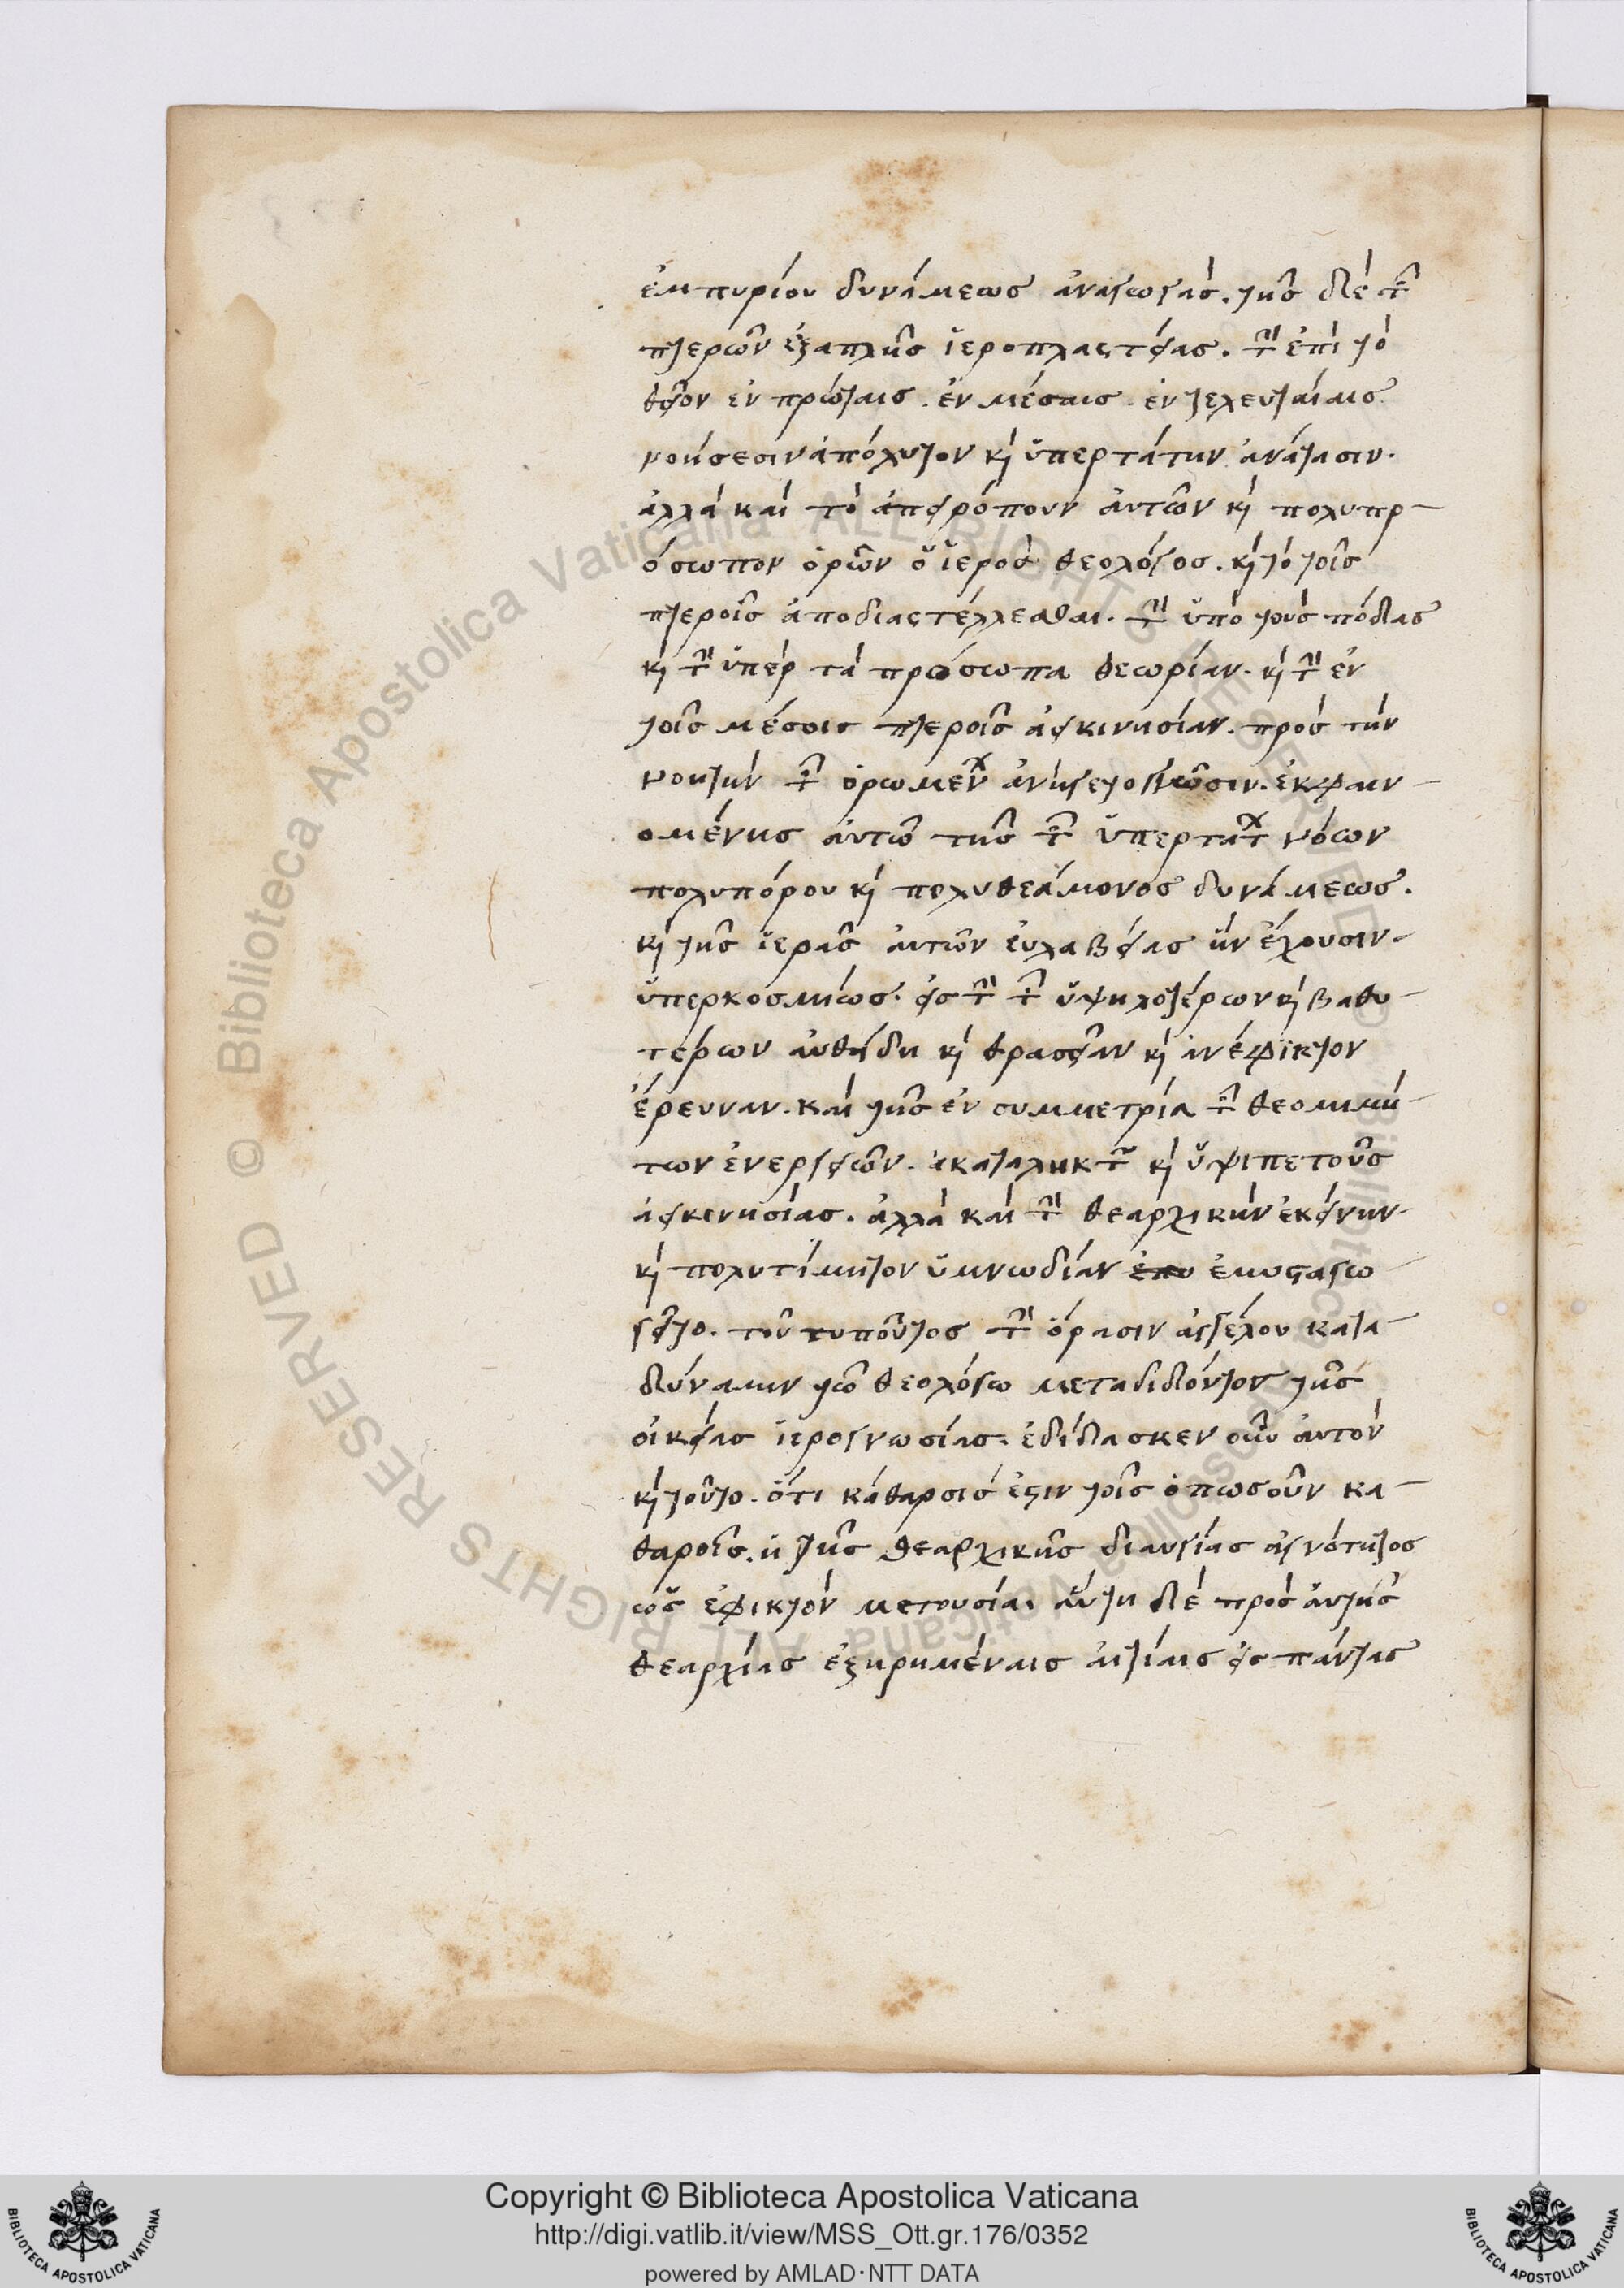 ἐμπυρίου δυνάμεως ἀναγωγὰς. τῆς δὲ τῶν
πτερῶν ἑξαπλῆς ἱεροπλαστείας. τὴν ἐπὶ τὸ
θεῖον ἐν πρώταις. ἐν μέσαις. ἐν τελευταίαις
νοήσεσιν ἀπόλυτον κὶ ὑπερτάτην ἀνάτασιν.
ἀλλὰ καὶ τὸ ἀπειρόπουν αὐτῶν κὶ πολυπρ-
όσωπον ὁρῶν ὁ ἱερὸς θεολόγος. κὶ τὸ τοῖς
πτεροῖς ἀποδιαστέλλεσθαι. τὴν ὑπὸ τοὺς πόδας
κὶ τὴν ὑπὲρ τὰ πρόσωπα θεωρίαν. κὶ τὴν ἐν
τοῖς μέσοις πτεροῖς ἀεικινησίαν. πρὸς τὴν
νοητὴν τῶν ὁρωμένων ἀνήγετο γνῶσιν. ἐκφαιν-
ομένης αὐτῶ τῆς τῶν ὑπερτάτων νόων
πολυπόρου κὶ πολυθεάμονος δυνάμεως.
κὶ τῆς ἱερᾶς αὐτῶν εὐλαβείας ἣν ἔχουσιν.
ὑπερκοσμίως. εἰς τὴν τῶν ὑψηλοτέρων κὶ βαθυ-
τέρων αὐθάδη κὶ θρασεῖαν κὶ ἀνέφικτον
ἔρευναν. καὶ τῆς ἐν συμμετρία τῶν θεομιμή-
των ἐνεργειῶν. ἀκαταλήκτου κὶ ὑψιπετοῦς
ἀεικινησίας. ἀλλὰ καὶ τὴν θεαρχικὴν ἐκείνην
κὶ πολυτίμητον ὑμνωδίαν ἐμυσταγω
γεῖτο. τοῦ τυποῦντος τὴν ὅρασιν ἀγγέλου κατα-
δύναμιν τῶ θεολόγω μεταδιδόντος τῆς
οἰκείας ἱερογνωσίας. ἐδίδασκεν οὖν αὐτὸν
κὶ τοῦτο. ὅτι κάθαρσίς ἐστιν τοῖς ὁπωσοῦν κα-
θαροῖς. ἡ τῆς θεαρχικῆς διαυγίας ἁγνότητος
ὡς ἐφικτὸν μετουσία. αὕτη δὲ πρὸς αὐτῆς
θεαρχίας ἐξηρημέναις αἰτίαις εἰς πάντας
Copyright © Biblioteca Apostolica Vaticana
http://digi.vatlib.it/view/MSS_Ott.gr.176/0352
powered by AMLAD·NTT DATA